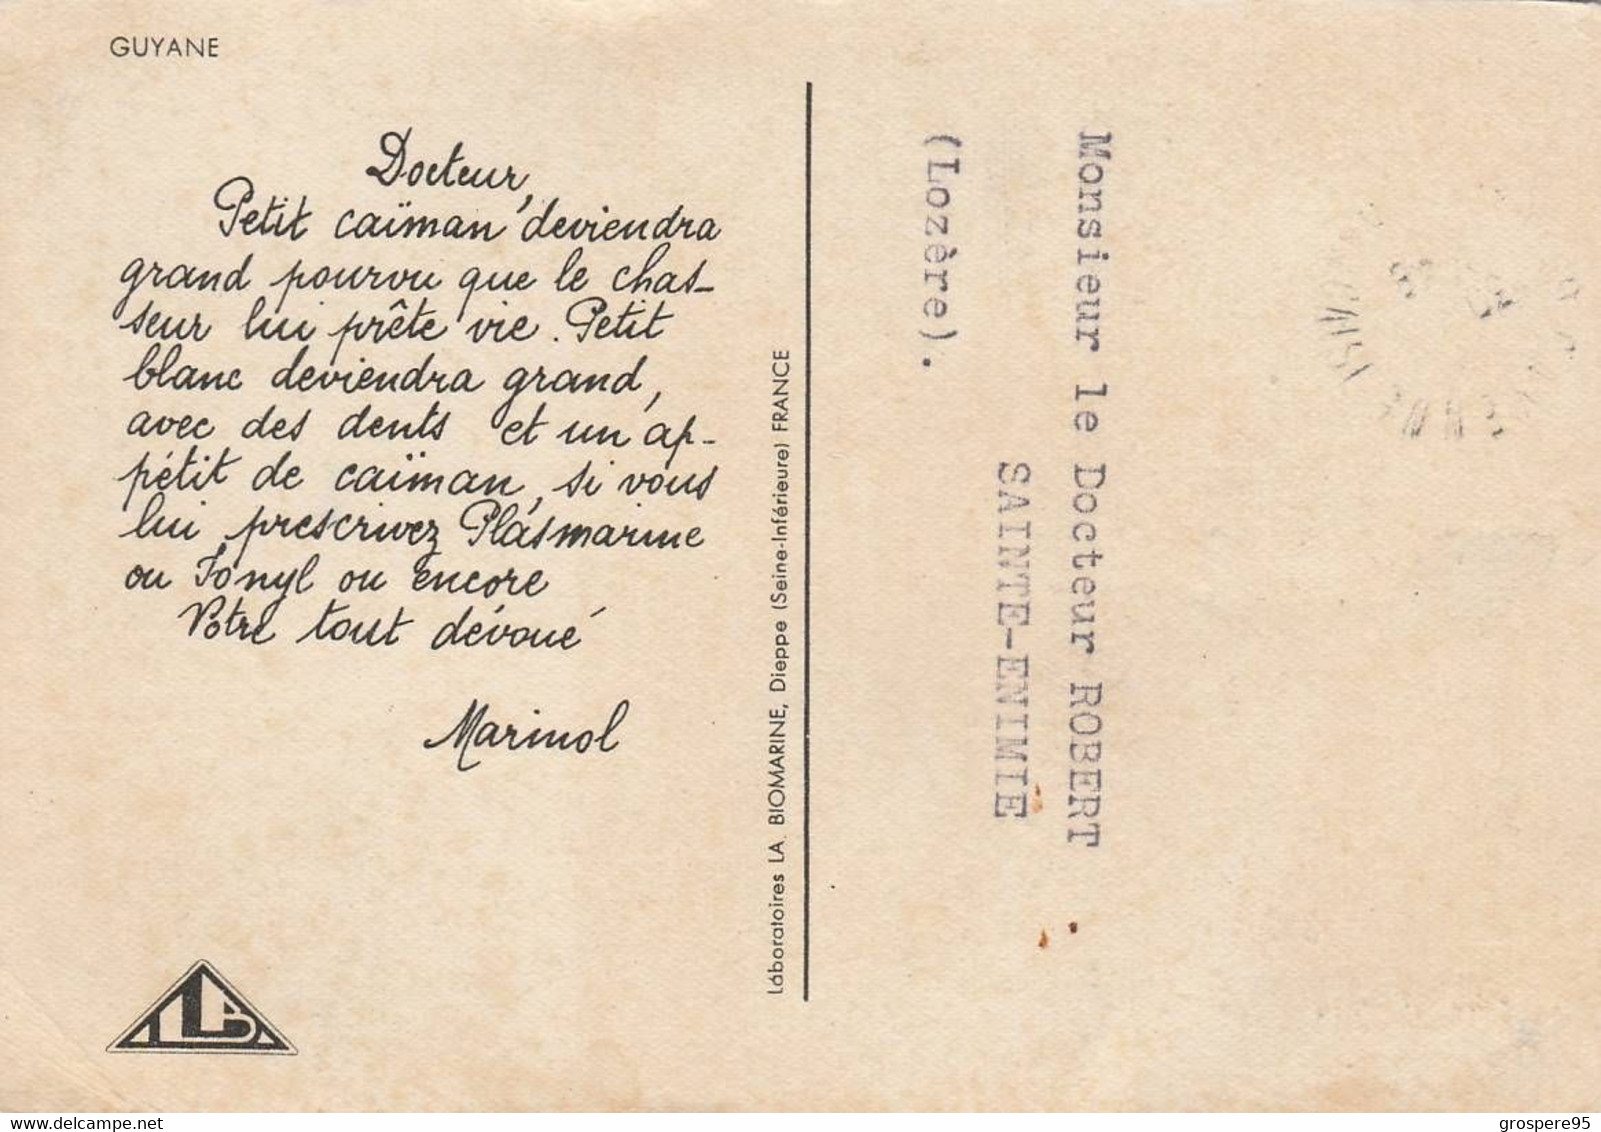 GUYANE
Docteur,
Petit caïman deviendra
grand pourvu que le chas-
seur lui prête vie. Petit
blanc deviendra grand,
avec des dents et un ap-
pétit de caïman, si vous
lui prescrivez Plasmarine
ou Ionyl ou encore
Votre tout dévoué
Marinol
Laboratoires LA BIOMARINE, Dieppe (Seine-Inférieure) FRANCE
Monsieur le Docteur ROBERT
SAINTE-ENIMIE
(Lozère).
LB
grospere95